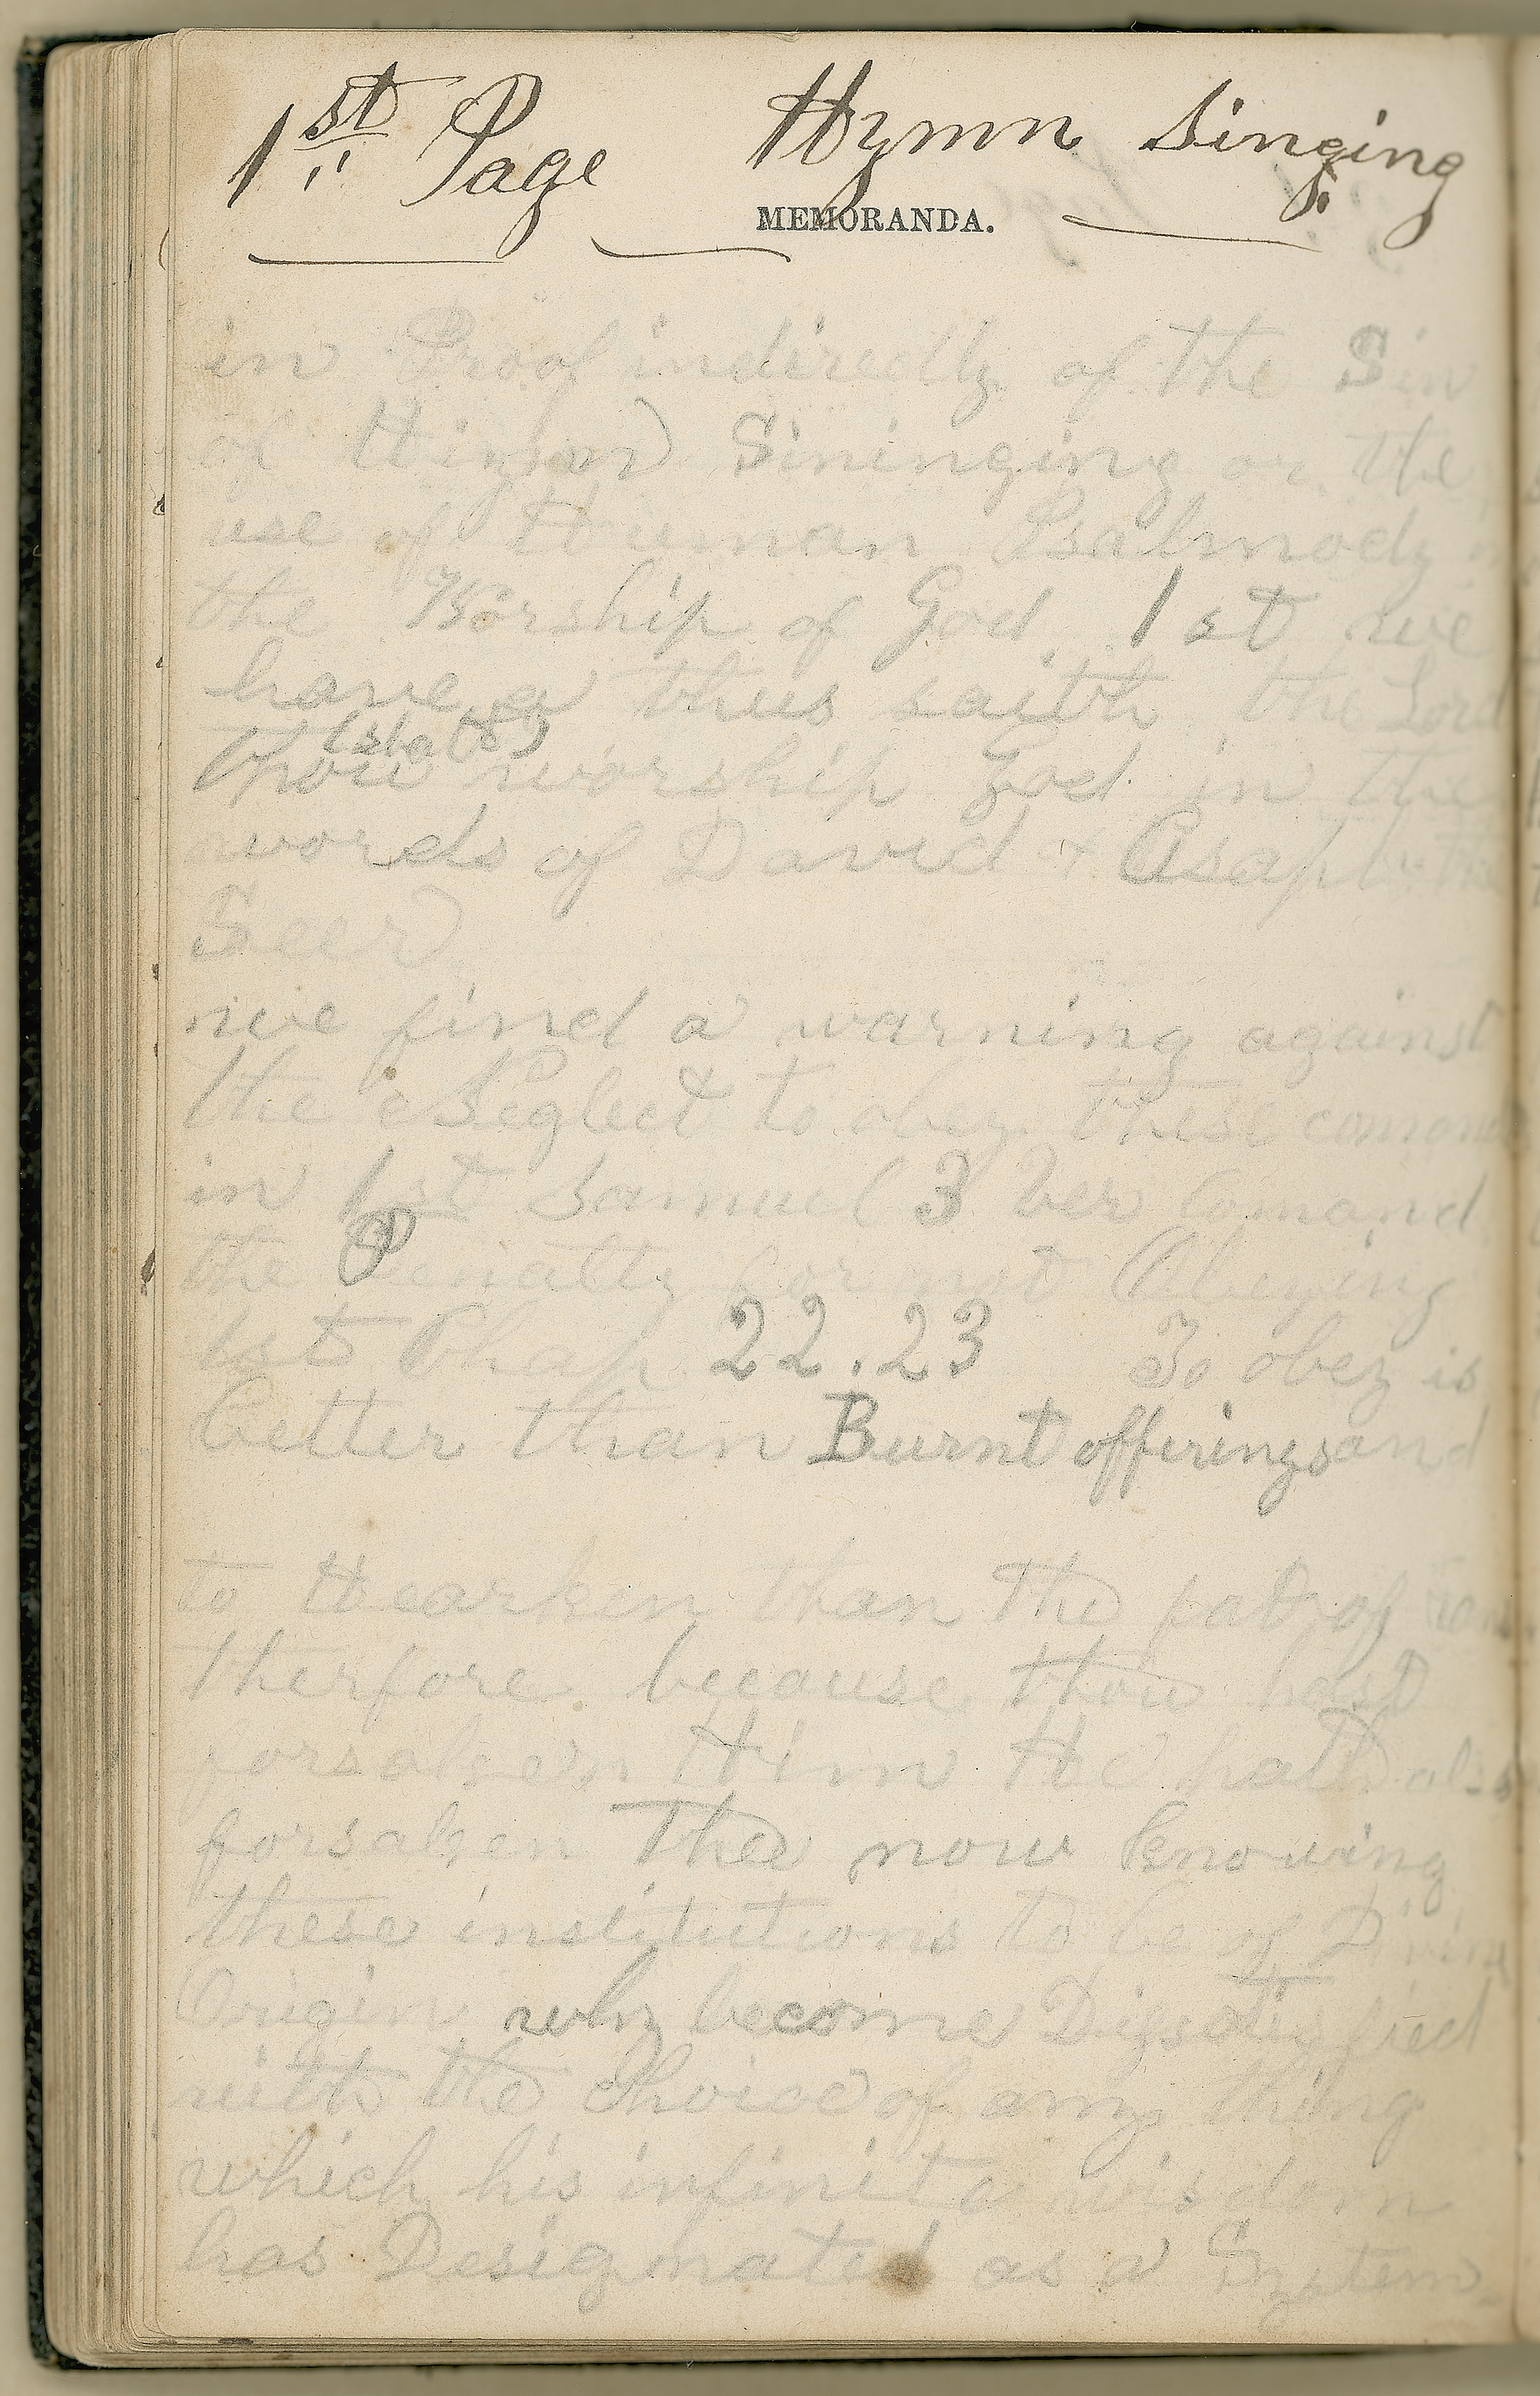 1st Page Hymn Singing
MEMORANDA.
in Proof indirectly of the Sin
of Singinging or the
use of Human Psalmody
the Worship of God 1st we
have a thus saith the Lord
(shalt)
thou worship God in the
words of David & Asaph the
Seer
we find a warning against
the Neglect to obey these
in 1st Samuel 3 ver Comand
the Penalty for not Obeying
1st Chap 22.23 To obey is
better than Burnt offirings and
to Hearken than the fat of
therfore because thou hast
forsaken Him He hath also
forsaken Thee now knowing
these institutions to be of Divine
Origin why become
with the Choice of any thing
which his infinite wisdom
has Designated as a System